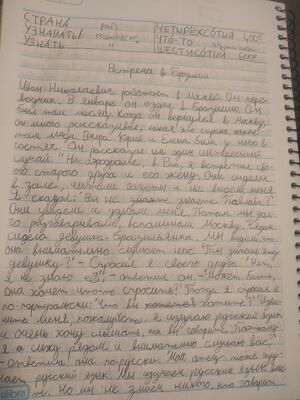 СТРАНА
УЗНАВАТЬ
УЗНАТЬ
ЧЕТЫРЁХСОТЫЙ 400й
ЧТО-ТО
ШЕСТИСОТЫЙ 600й
Встреча в Бразилии
Иван Николаевич работает в Москве. Он пере-
водчик. В январе он ездил в Бразилию. Он
был там месяц. Когда он вернулся в Москву,
он много рассказывал, какая это страна, какие
там люди. Вчера Юрий и Елена были у него в
гостях. Он рассказал им один интересный
случай: "На аэродроме, в Рио, я встретил сво-
его старого друга и его жену. Они сидели
в зале, читали газеты и не видели меня.
Я сказал: Вы не знаете
Они увидели и узнали меня. Потом мы дол-
го разговаривали, вспоминали Москву. Рядом
сидела девушка-бразильянка. Мы видели, что
она внимательно слушает нас. "Ты знаешь эту
девушку?" - Спросил я своего друга. "Нет,
я не знаю её", - ответил он - "Может быть,
она хочет что-то спросить?" Тогда я спросил её
по-португальски: "Что вы хотите?" "Изви-
ните меня, пожалуйста. Я изучаю русский язык
и очень хочу слушать, как вы говорите. Поэтому
я сижу рядом и внимательно слушаю вас," -
ответила она по-русски. отец тоже изу-
чает русский язык. Мы изучаем русский язык
Но мы не знаем никого, кто говорит